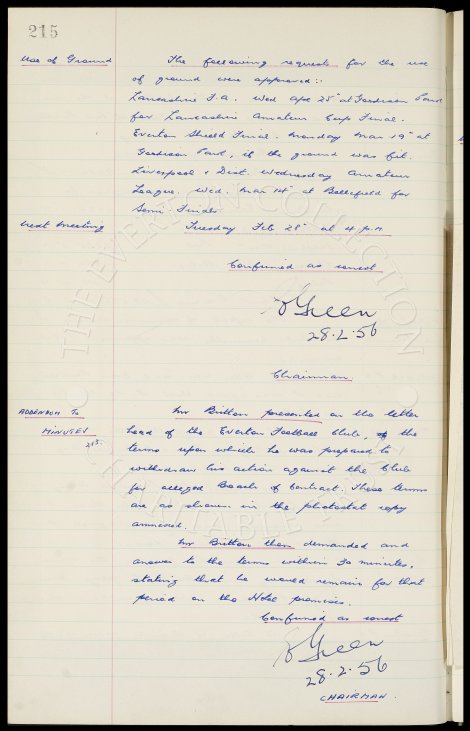 215
Use of Ground
The following requests for the use
of ground were approved:-
Lancashire F.A. Wed Apr 25th at Goodison Park
for Lancashire Amateur Cup Final.
Everton Shield Final. Monday Mar 19th at
Goodison Park, if the ground was fit.
Liverpool & Dist. Wednesday Amateur
League. Wed. Mar 14th at Bellefield for
Semi-Finals.
Next Meeting
Tuesday Feb 28th at 4 p.m.
Confirmed as correct
Green
28.2.56
Chairman.
ADDENDUM To
MINUTES
213.
Mr Britton presented on the letter
head of the Everton Football Club, the
terms upon which he was prepared to
withdraw his action against the Club
for alleged Breach of Contract. These terms
are as shown in the photostat copy
annexed.
Mr Britton then demanded and
answer to the terms within 30 minutes,
stating that he would remain for that
period on the Hotel premises.
Confirmed as correct
Green
28.2.56
CHAIRMAN.
THE EVERTON COLLECTION
CHARITABLE TRUST